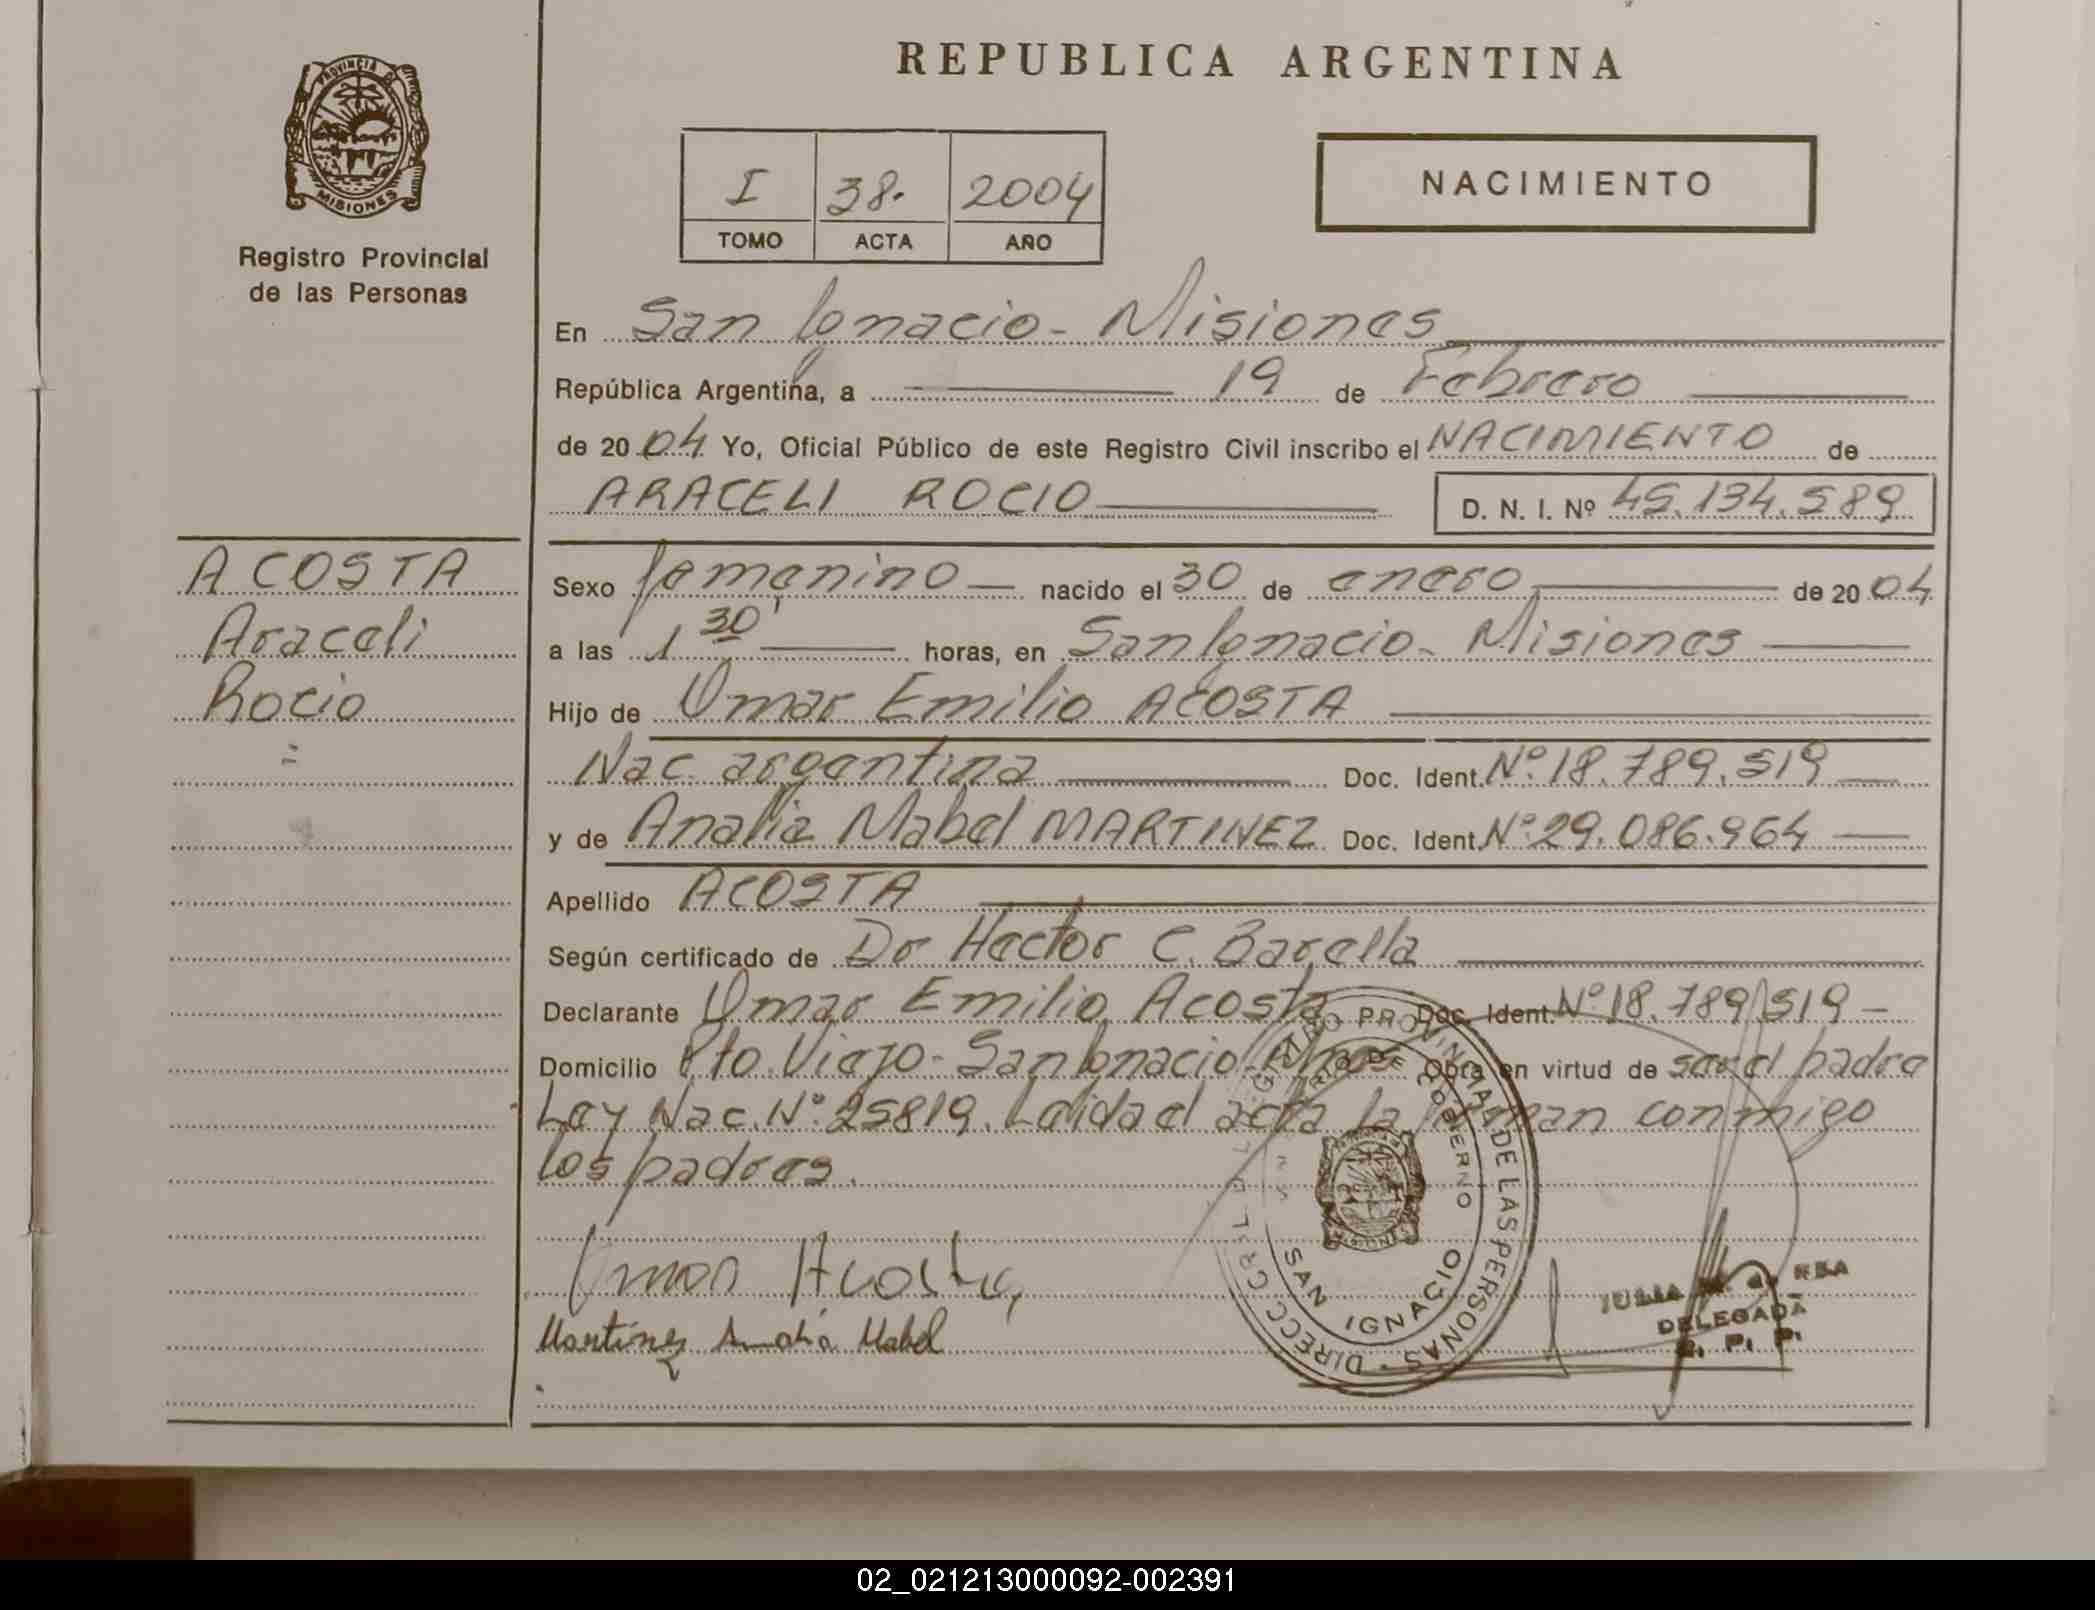 REPUBLICA ARGENTINA
PROVINCIA DE
MISIONES
Registro Provincial
de las Personas
I 38. 2004
TOMO ACTA AÑO
NACIMIENTO
En San Ignacio - Misiones
República Argentina, a 19 de Febrero
de 2004 Yo, Oficial Público de este Registro Civil inscribo el NACIMIENTO de
ARACELI ROCIO D. N. I. Nº 45.134.589
ACOSTA
Araceli
Rocio
Sexo femenino nacido el 30 de enero de 2004
a las 1 30' horas, en San Ignacio - Misiones
Hijo de Omar Emilio ACOSTA
Nac. argentina Doc. Ident. Nº 18.789.519
y de Analia Mabel MARTINEZ Doc. Ident. Nº 29.086.964
Apellido ACOSTA
Según certificado de Dr Hector C. Barella
Declarante Omar Emilio Acosta Doc. Ident. Nº 18.789.519 -
Domicilio Pto. Viejo - San Ignacio Obra en virtud de ser el padre
Ley Nac. Nº 25819. Leida el acta la firman conmigo
los padres.
Omar Acosta
Martínez Analía Mabel
SAN IGNACIO
JULIA REA
DELEGADA
R. P. P.
02_021213000092-002391